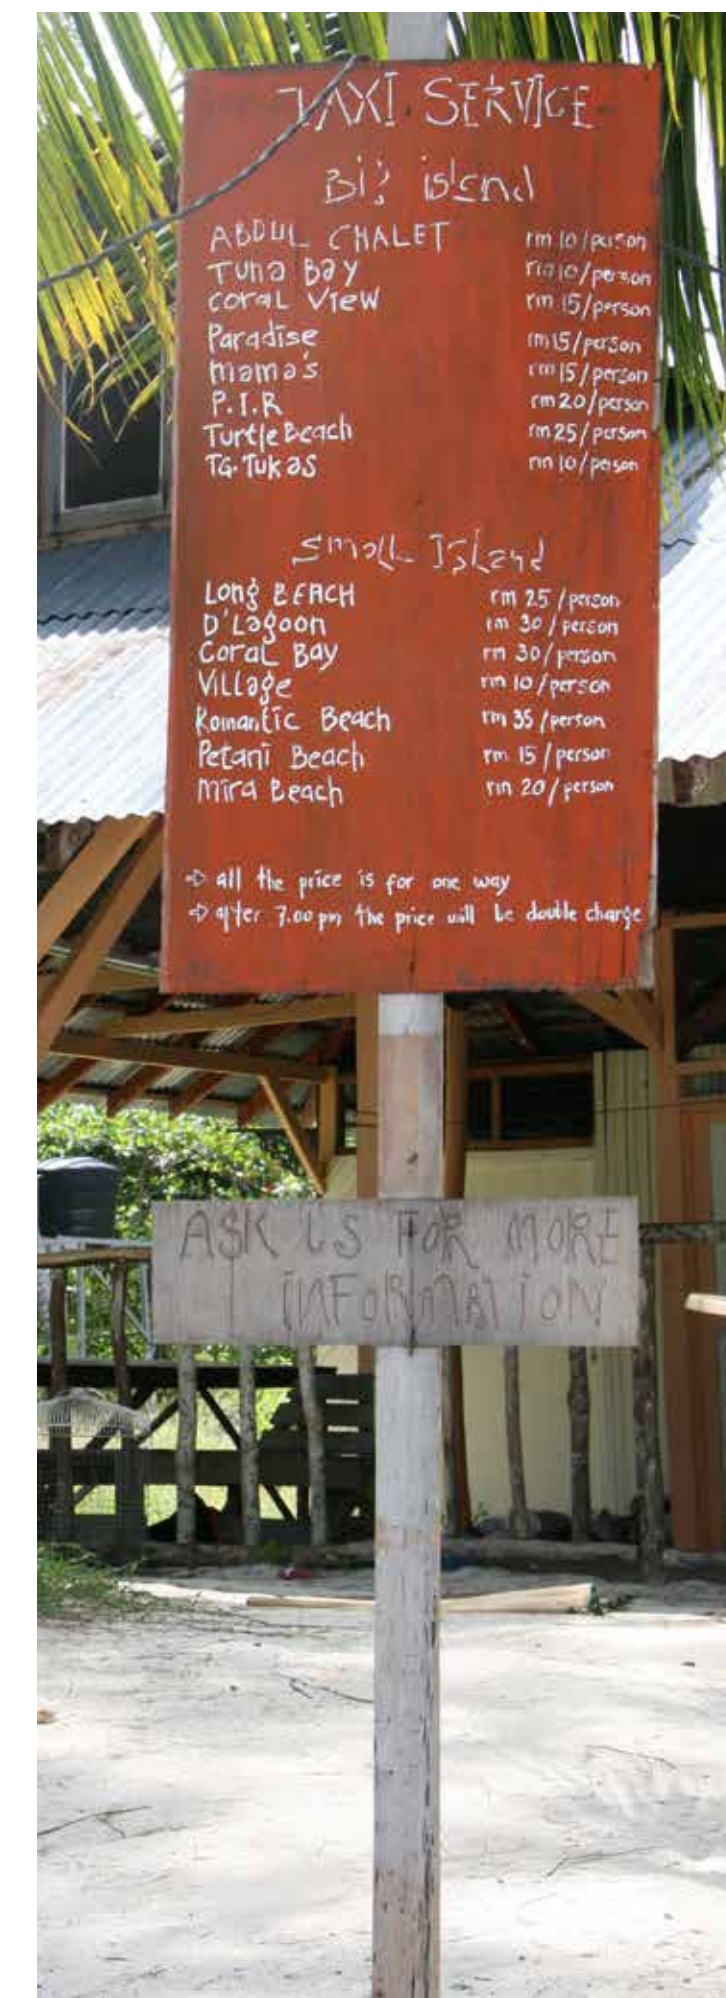 TAXI SERVICE
Big island
ABDUL CHALET rm 10/person
Tuna Bay rm 10/person
coral View rm 15/person
Paradise rm 15/person
mama's rm 15/person
P.I.R rm 20/person
Turtle Beach rm 25/person
TG.Tukas rm 10/person
Small Island
Long BEACH rm 25/person
D'Lagoon rm 30/person
Coral Bay rm 30/person
Village rm 10/person
Romantic Beach rm 35/person
Petani Beach rm 15/person
Mira Beach rm 20/person
⇨ all the price is for one way
⇨ after 7.00 pm the price will be double charge
ASK US FOR MORE
INFORMATION